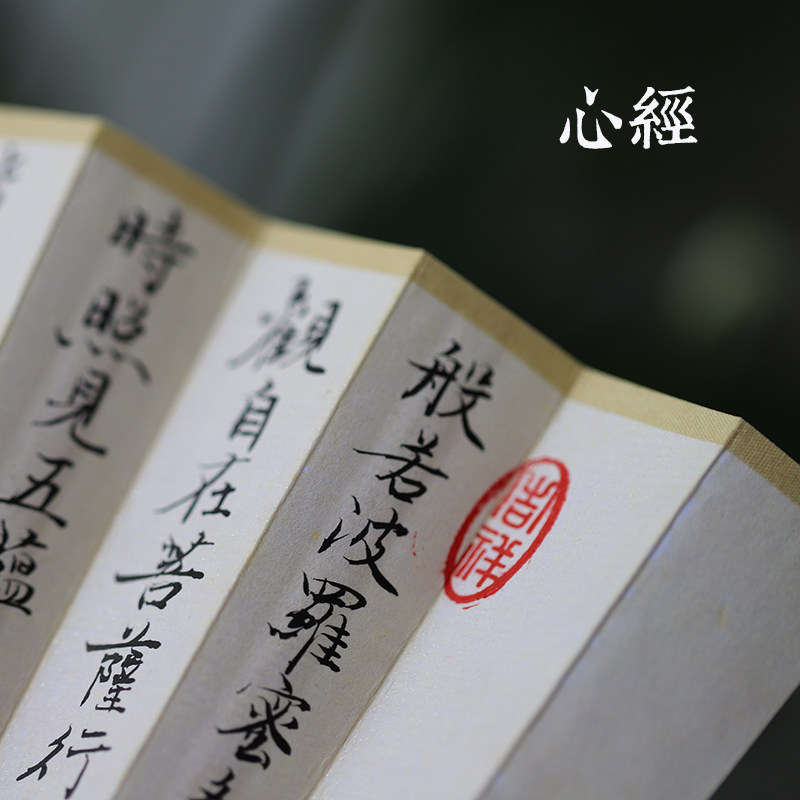 心經
吉祥
般若波羅蜜
觀自在菩薩行
時照見五蘊